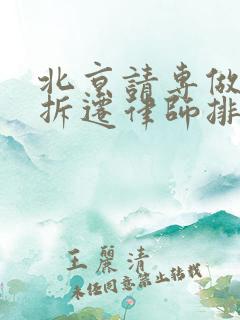 北京請專做
拆遷律師排
王麗清
未经同意禁止转载